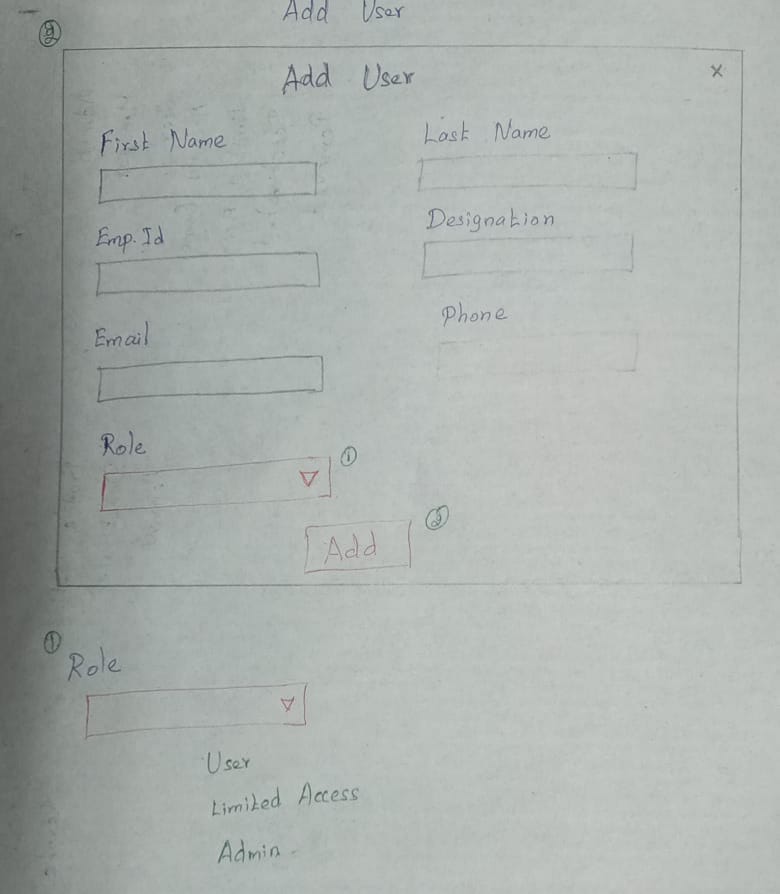 Add User
Add User
×
First Name
Last Name
Emp. Id
Designation
Email
Phone
Role
①
②
Add
①
Role
User
Limited Access
Admin